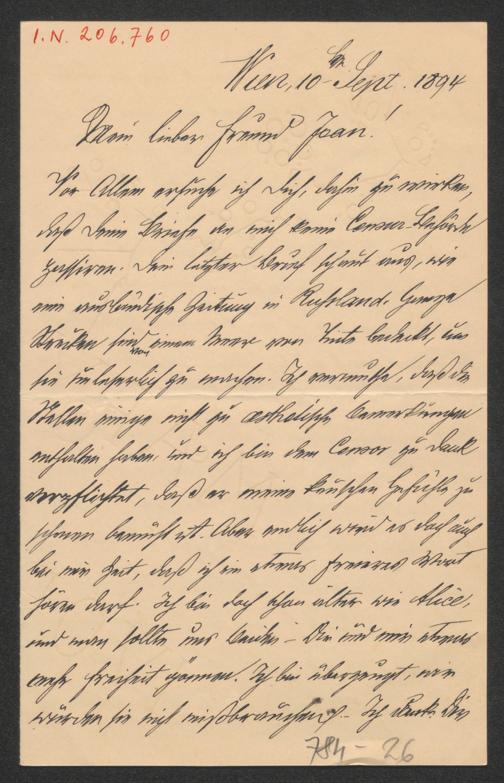 I.N. 206.760
Wien, 10ten Sept. 1894
Mein lieber Freund Jean!
Vor Allem ersuche ich Dich, dahin zu wirken,
daß Deine Briefe an mich keine Censur-Behörde
passiren. Dein letzter Brief schaut aus, wie
eine ausländische Zeitung in Rußland. Ganze
Strecken sind von einem Meere von Tinte bedeckt, um
sie unleserlich zu machen. Ich vermuthe, daß die
Stellen einige nicht zu ästhetische Bemerkungen
enthalten haben und ich bin dem Censor zu Dank
verpflichtet, daß er meine keuschen Gefühle zu
schonen bemüht ist. Aber endlich wird es doch auch
bei mir Zeit, daß ich ein etwas freieres Wort
hören darf. Ich bin doch schon älter wie Alice,
und man sollte uns beiden – Dir und mir etwas
mehr Freiheit gönnen. Ich bin überzeugt, wir
würden sie nicht mißbrauchen. – Ich danke Dir
784 – 26